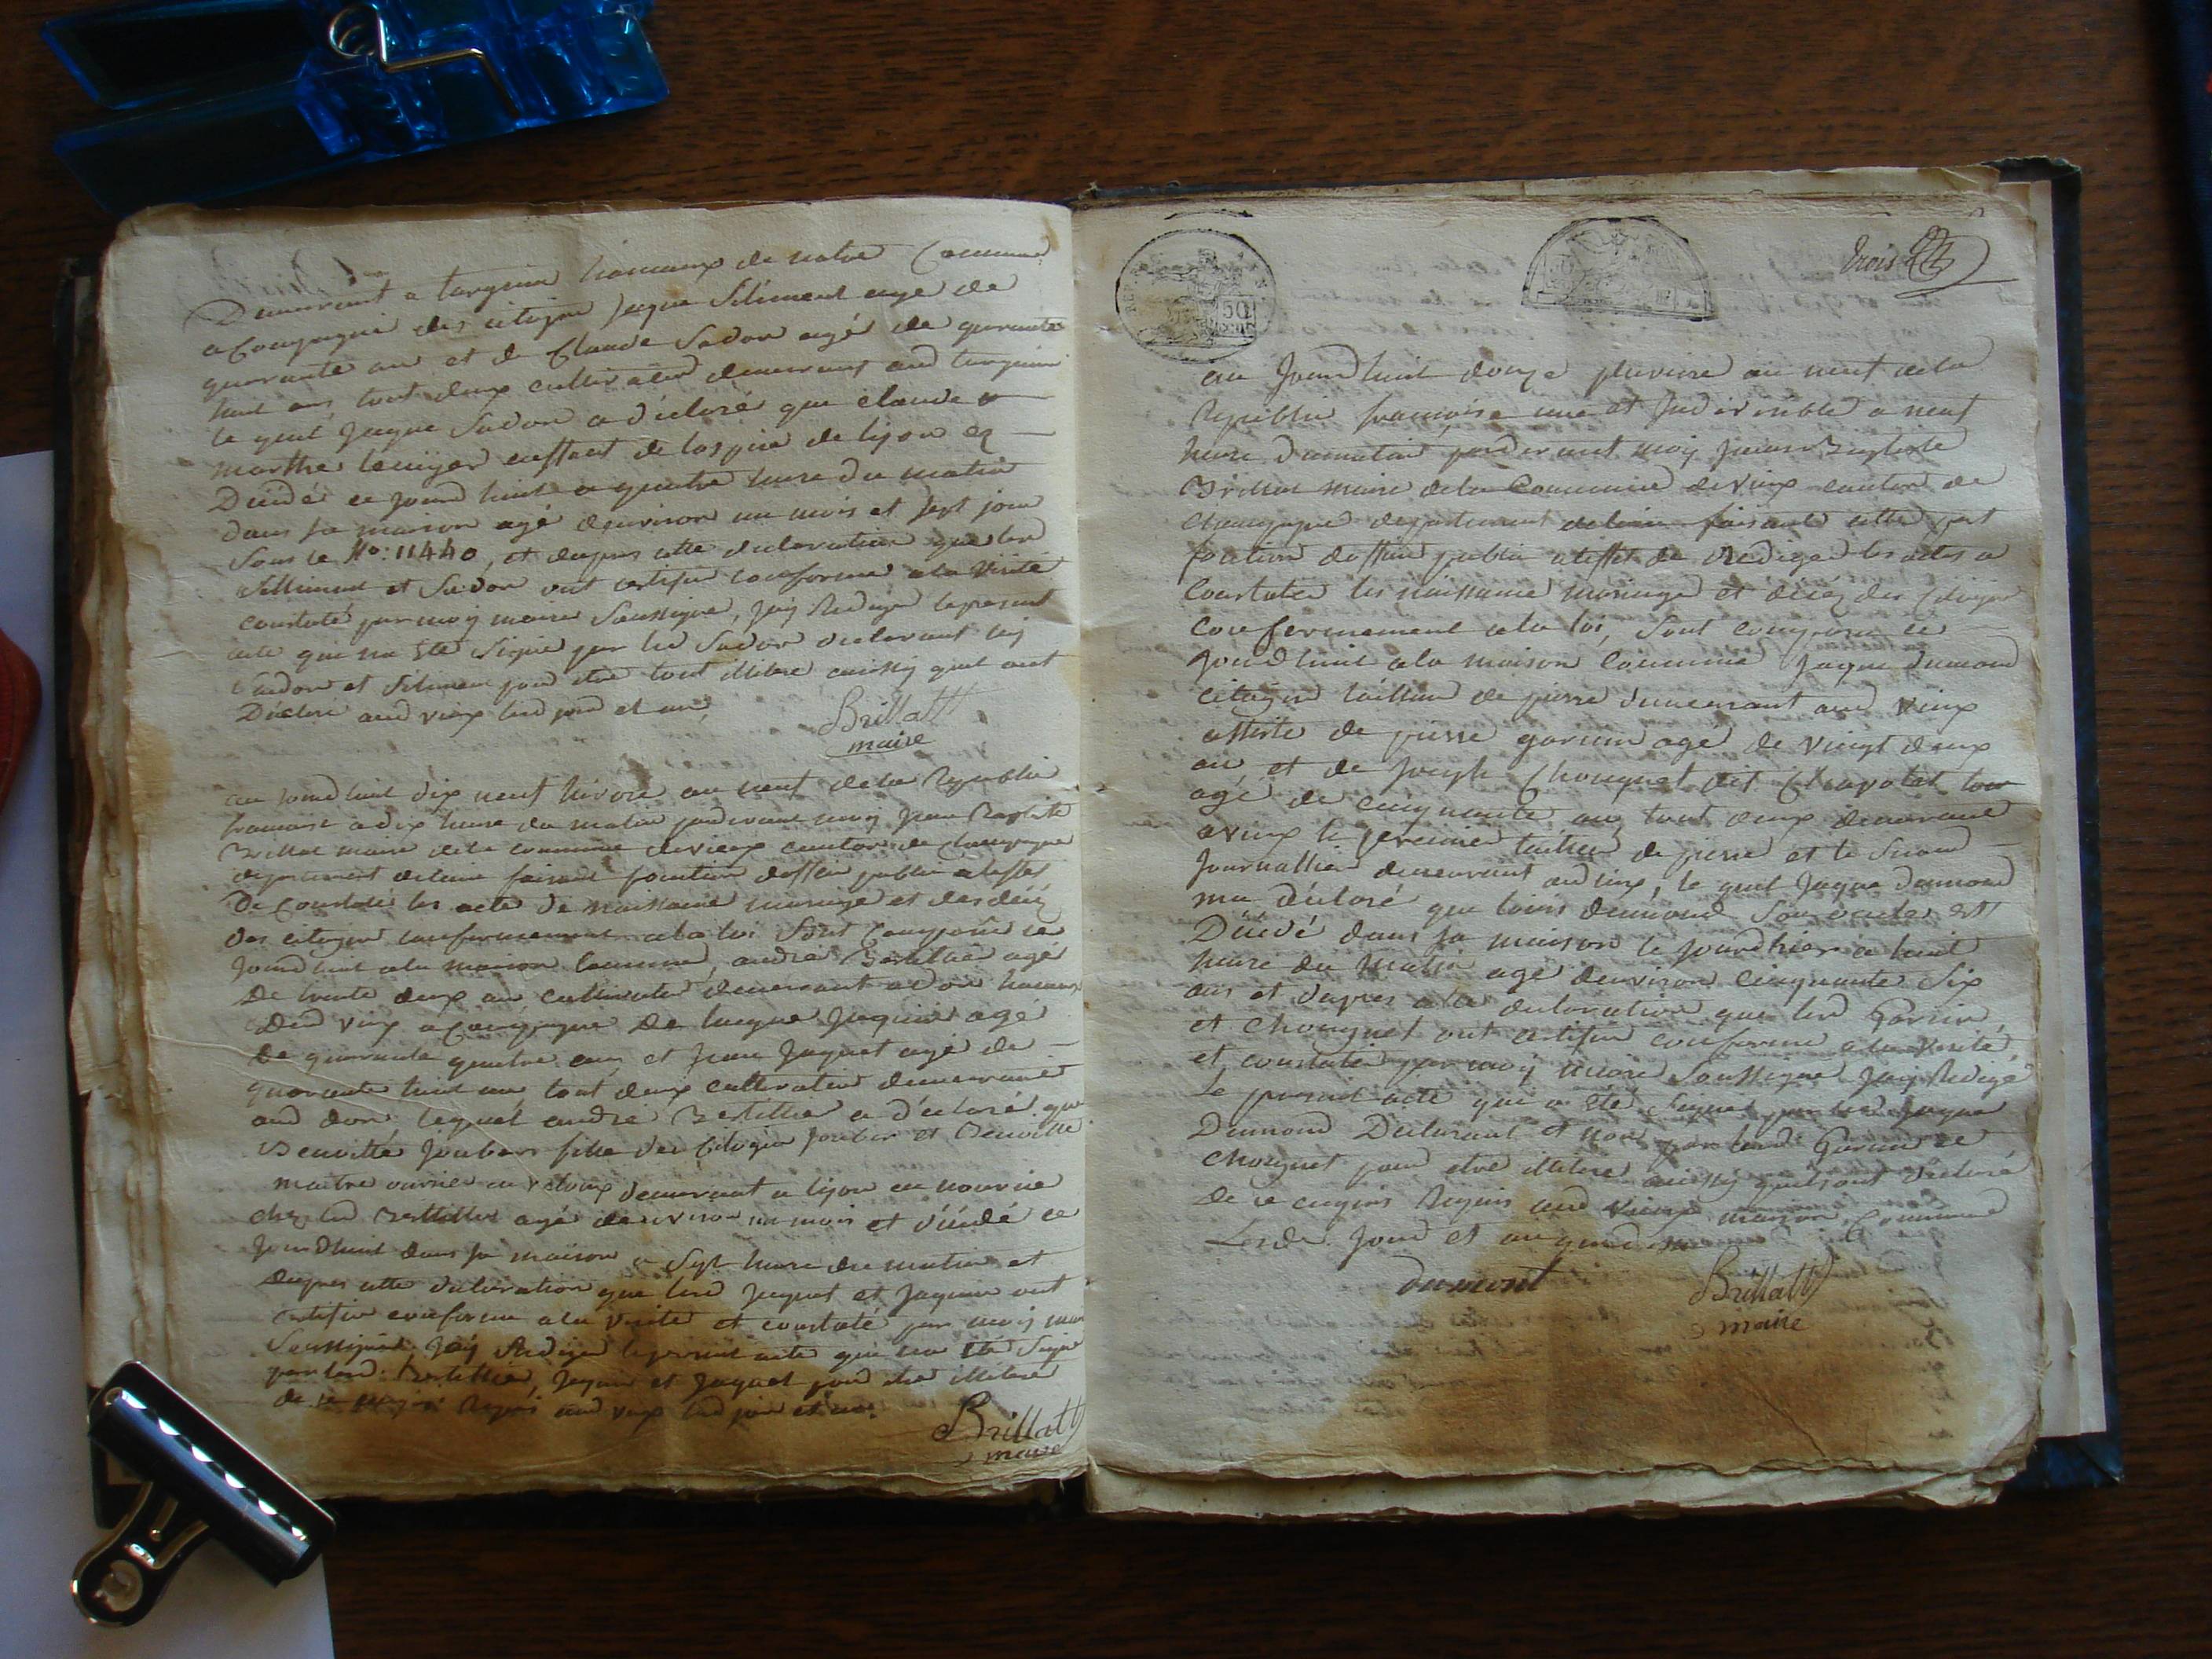 Demeurant a turgnin hameaux de notre Commune
a Compagnie des citoyin Jaque Siliment agé de
quarante an et de Claude Sadon agé de quarante
huit ans tout deux cultivateur demeurant aud turgnin
le quel Jaque Sadon a déclaré que claude
marthe enffant de lospice de lyon
Décédé ce Jourd huit a quatre heure du matin
dans sa maison agé denviron un mois et sept jour
sous le No: 11440, et daprés cette declaration que led
Silliment et Sadon ont certifié conforme a la vérité
constaté par moy maire Soussigné, Jay Redigé le present
acte qui na été Signé par led Sadon declarant ny
Sadon et Siliment pour etre tout illitéré ainssy quil ont
Déclaré aud vieux led jour et an,
Brillatt
maire
au jourd huit dix neuf nivose an neuf de la Republie
francaise a dix heure du matin pardevant moy Jean Baptiste
Brillat maire de la commune de vieux canton de champagne
departement de lain faisant fonction doffisié public a leffet
De Constaté les acte de naissance mariage et des décé
des citoyin conformement a la loi Sont Comparu ce
Jourd huit a la maison Commune, andré Bertillié agé
De trente deux an cultivateur demeurant a don hameaux
Dud vieux a Compagnie De Jaquin agé
de quarante quatre ans et Jean Jaquet agé de
quarante huit an tout deux cultivateur demeurant
aud don, lequel andré Bertillié a déclaré que
Benoitte Joubert fille des Citoyin Joubert et Benoitte
maitre ouvrié demeurant a lyon en nourrice
chez led Bertillié agé denviron un mois et décédé ce
Jourdhuit dans sa maison a Sept heure du matin et
daprés cette declaration que led Jaquet et Jaquin ont
certifié conforme a la vérité et constaté par moy maire
Soussigné, Jay Redigé le present acte qui na été Signé
par led. Bertillié, Jaquin et Jaquet pour etre illitéré
de ce Requis aud vieux led jour et an.
Brillatt
maire
REP. FRA.
50
trois
au Jourdhuit douze pluviose an neuf de la
Republie francaise une et Indivisible a neuf
heure du matin pardevant moy Jean Baptiste
Brillat maire de la Commune de vieux canton de
champagne departement de lain faisant cette
fonction doffisié public a leffet de Redigé les actes a
Constaté les naissance mariage et décéz des Citoyin
Conformement a la loi, Sont comparu ce
Jourd huit a la maison Commune Jaque Dumond
citoyin tailleur de pierre demeurant aud vieux
assisté de pierre garnin agé de vingt deux
an et de Joseph Chouquet dit Chapolat
agé de cinquante an, tout deux demeurant
a vieux le premier tailleur de pierre et le Second
Journallier demeurant aud vieux, le quel Jaque Dumond
ma déclaré que louis dumond Son est
Décédé dans sa maison le jourdhier a huit
heure du matin agé denviron cinquante Six
ans et daprés cette declaration que led Garnin
et Chouquet ont certifié conforme a la vérité,
et constaté par moy maire Soussigné Jay Redigé
Le present acte qui a été Signé par led Jaque
Dumond Declarant et non par led Garnin et
Chouquet pour etre illitéré ainssy quils ont déclaré
de ce enquis Requis aud vieux maison Commune
Lesd. Jour et an
dumont
Brillatt
maire